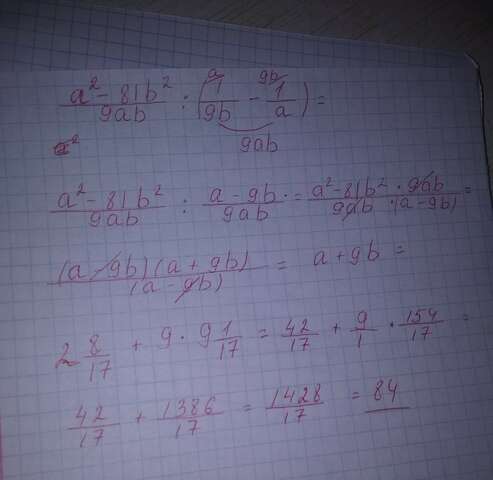 (a² - 81b²)/(9ab) : (1/(9b) - 1/a) =
a 9b
a² 9ab
(a² - 81b²)/(9ab) : (a - 9b)/(9ab) = (a² - 81b² · 9ab)/(9ab · (a - 9b)) =
((a - 9b)(a + 9b))/((a - 9b)) = a + 9b =
2 8/17 + 9 · 9 1/17 = 42/17 + 9/1 · 154/17 =
42/17 + 1386/17 = 1428/17 = 84